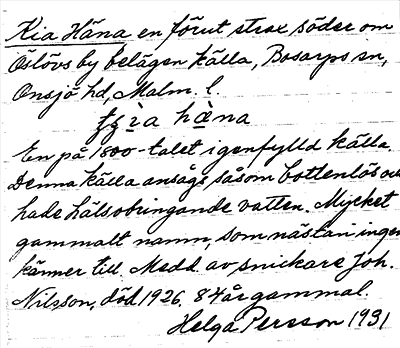 Kia Häna en förut strax söder om
Öslövs by belägen källa, Bosarps sn,
Onsjö hd, Malm. l.
hæna
En på 1800-talet igenfylld källa.
Denna källa ansågs såsom bottenlös och
hade hälsobringande vatten. Mycket
gammalt namn, som nästan ingen
känner till. Medd. av snickare Joh.
Nilsson, död 1926. 84 år gammal.
Helga Persson 1931